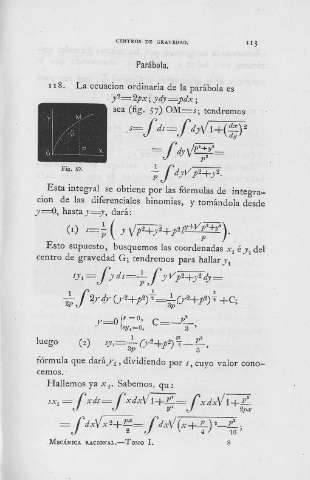 CENTROS DE GRAVEDAD. 113
Parábola.
118. La ecuacion ordinaria de la parábola es
y²=2px; ydy=pdx;
sea (fig. 57) OM=s; tendremos
s=∫ds=∫dy√1+(dx/dy)²
=∫dy√(p²+y²)/p²=
1/p ∫dy√p²+y².
Y M G O P x
Fig. 57.
Esta integral se obtiene por las fórmulas de integra-
cion de las diferenciales binomias, y tomándola desde
y=0, hasta y=y, dará:
(1) s=1/p (y√p²+y²+p²
Esto supuesto, busquemos las coordenadas x₁ é y₁ del
centro de gravedad G; tendremos para hallar y₁
sy₁=∫yds=1/p ∫y√p²+y² dy=
1/2p ∫2y dy (y²+p²)^½=1/3p (y²+p²)^3/2+C;
y=0 {s=0, sy₁=0, C=—p²/3,
luego (2) sy₁=1/3p (y²+p²)^3/2—p²/3,
fórmula que dará y₁, dividiendo por s, cuyo valor cono-
cemos.
Hallemos ya x₁. Sabemos, que
sx₁=∫xds=∫xdx√1+p²/y²=∫xdx√1+p²/2px
=∫dx√x²+px/2=∫dx√(x+p/4)²—p²/16;
MECÁNICA RACIONAL.—TOMO I. 8